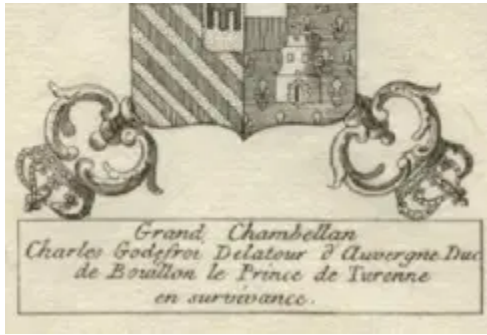 Grand Chambellan
Charles Godefroi Delatour d'Auvergne Duc
de Bouillon le Prince de Turenne
en survivance.